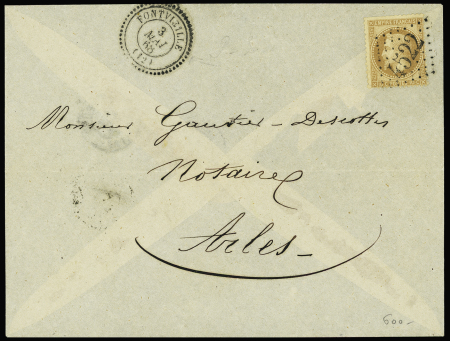 FONTVIEILLE
3
MAI
68
(12)
EMPIRE FRANÇAIS
1522
Monsieur Gautier-Descottes
Notaire
Arles-
600-